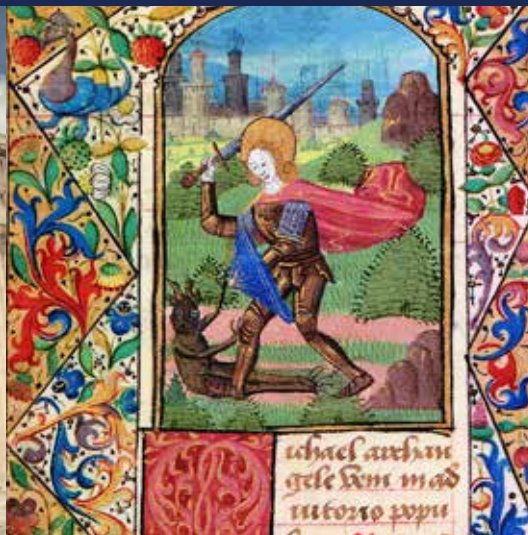 ichael archan
gele veni in ad
iutorio popu